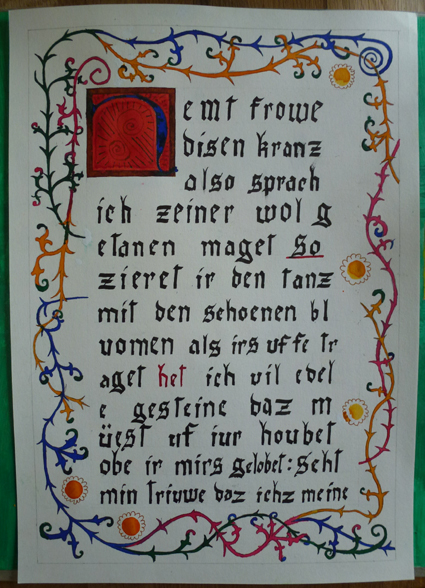 Nemt frowe
disen kranz
also sprach
ich zeiner wol g
etanen maget So
zieret ir den tanz
mit den schoenen bl
uomen als irs uffe tr
aget het ich vil edel
e gesteine daz m
üest uf iur houbet
obe ir mirs gelobet: Seht
min triuwe daz ichz meine